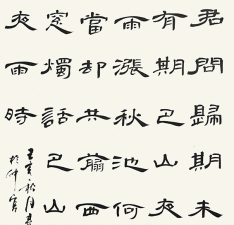 君問歸期未
有期巴山夜
雨漲秋池何
當却共翦西
窗燭話巴山
夜雨時